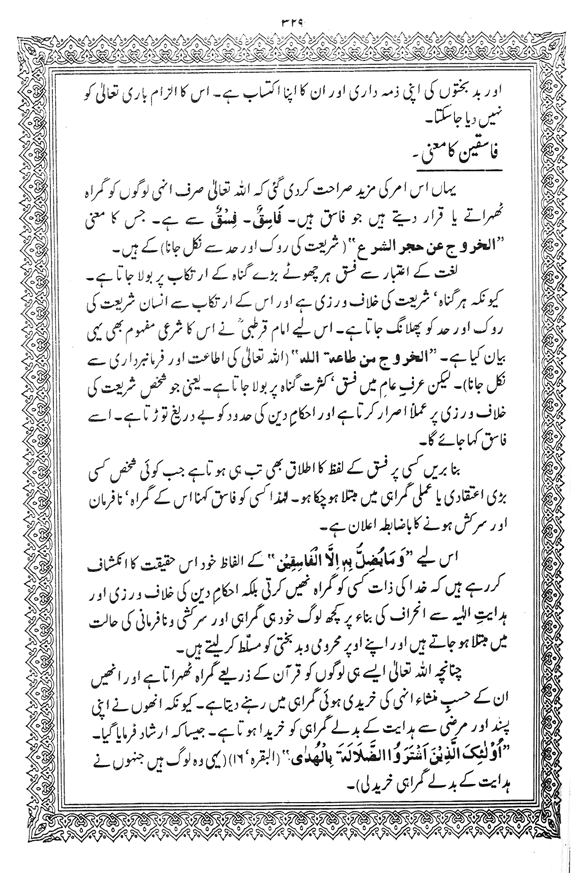 ۳۲۹
اور بد بختوں کی اپنی ذمہ داری اور ان کا اپنا اکتساب ہے۔ اس کا الزام باری تعالیٰ کو
نہیں دیا جا سکتا۔
فاسقین کا معنی ۔
یہاں اس امر کی مزید صراحت کردی گئی کہ اللہ تعالیٰ صرف انہی لوگوں کو گمراہ
ٹھہراتے یا قرار دیتے ہیں جو فاسق ہیں۔ فَاسِقٌ۔ فِسْقٌ سے ہے۔ جس کا معنی
”الخروج عن حجر الشرع“ (شریعت کی روک اور حد سے نکل جانا) کے ہیں۔
لغت کے اعتبار سے فسق ہر چھوٹے بڑے گناہ کے ارتکاب پر بولا جاتا ہے۔
کیونکہ ہر گناہ‘ شریعت کی خلاف ورزی ہے اور اس کے ارتکاب سے انسان شریعت کی
روک اور حد کو پھلانگ جاتا ہے۔ اس لیے امام قرطبیؒ نے اس کا شرعی مفہوم بھی یہی
بیان کیا ہے۔ ”الخروج من طاعۃ اللہ“ (اللہ تعالیٰ کی اطاعت اور فرمانبرداری سے
نکل جانا)۔ لیکن عرفِ عام میں فسق‘ کثرت گناہ پر بولا جاتا ہے۔ یعنی جو شخص شریعت کی
خلاف ورزی پر عملاً اصرار کرتا ہے اور احکامِ دین کی حدود کو بے دریغ توڑتا ہے۔ اسے
فاسق کہا جائے گا۔
بنا بریں کسی پر فسق کے لفظ کا اطلاق بھی تب ہی ہوتا ہے جب کوئی شخص کسی
بڑی اعتقادی یا عملی گمراہی میں مبتلا ہو چکا ہو۔ لہٰذا کسی کو فاسق کہنا اس کے گمراہ‘ نافرمان
اور سرکش ہونے کا باضابطہ اعلان ہے۔
اس لیے ”وَمَا يُضِلُّ بِهٖ اِلَّا الْفَاسِقِيْنَ“ کے الفاظ خود اس حقیقت کا انکشاف
کر رہے ہیں کہ خدا کی ذات کسی کو گمراہ نہیں کرتی بلکہ احکامِ دین کی خلاف ورزی اور
ہدایتِ الٰہیہ سے انحراف کی بناء پر کچھ لوگ خود ہی گمراہی اور سرکشی و نافرمانی کی حالت
میں مبتلا ہو جاتے ہیں اور اپنے اوپر محرومی و بد بختی کو مسلّط کر لیتے ہیں۔
چنانچہ اللہ تعالیٰ ایسے ہی لوگوں کو قرآن کے ذریعے گمراہ ٹھہراتا ہے اور انھیں
ان کے حسبِ منشاء انہی کی خریدی ہوئی گمراہی میں رہنے دیتا ہے۔ کیونکہ انھوں نے اپنی
پسند اور مرضی سے ہدایت کے بدلے گمراہی کو خریدا ہوتا ہے۔ جیسا کہ ارشاد فرمایا گیا۔
”اُوْلٰئِكَ الَّذِيْنَ اشْتَرَوُا الضَّلَالَةَ بِالْهُدٰى“ (البقرہ‘ ۱۶) (یہی وہ لوگ ہیں جنہوں نے
ہدایت کے بدلے گمراہی خرید لی)۔